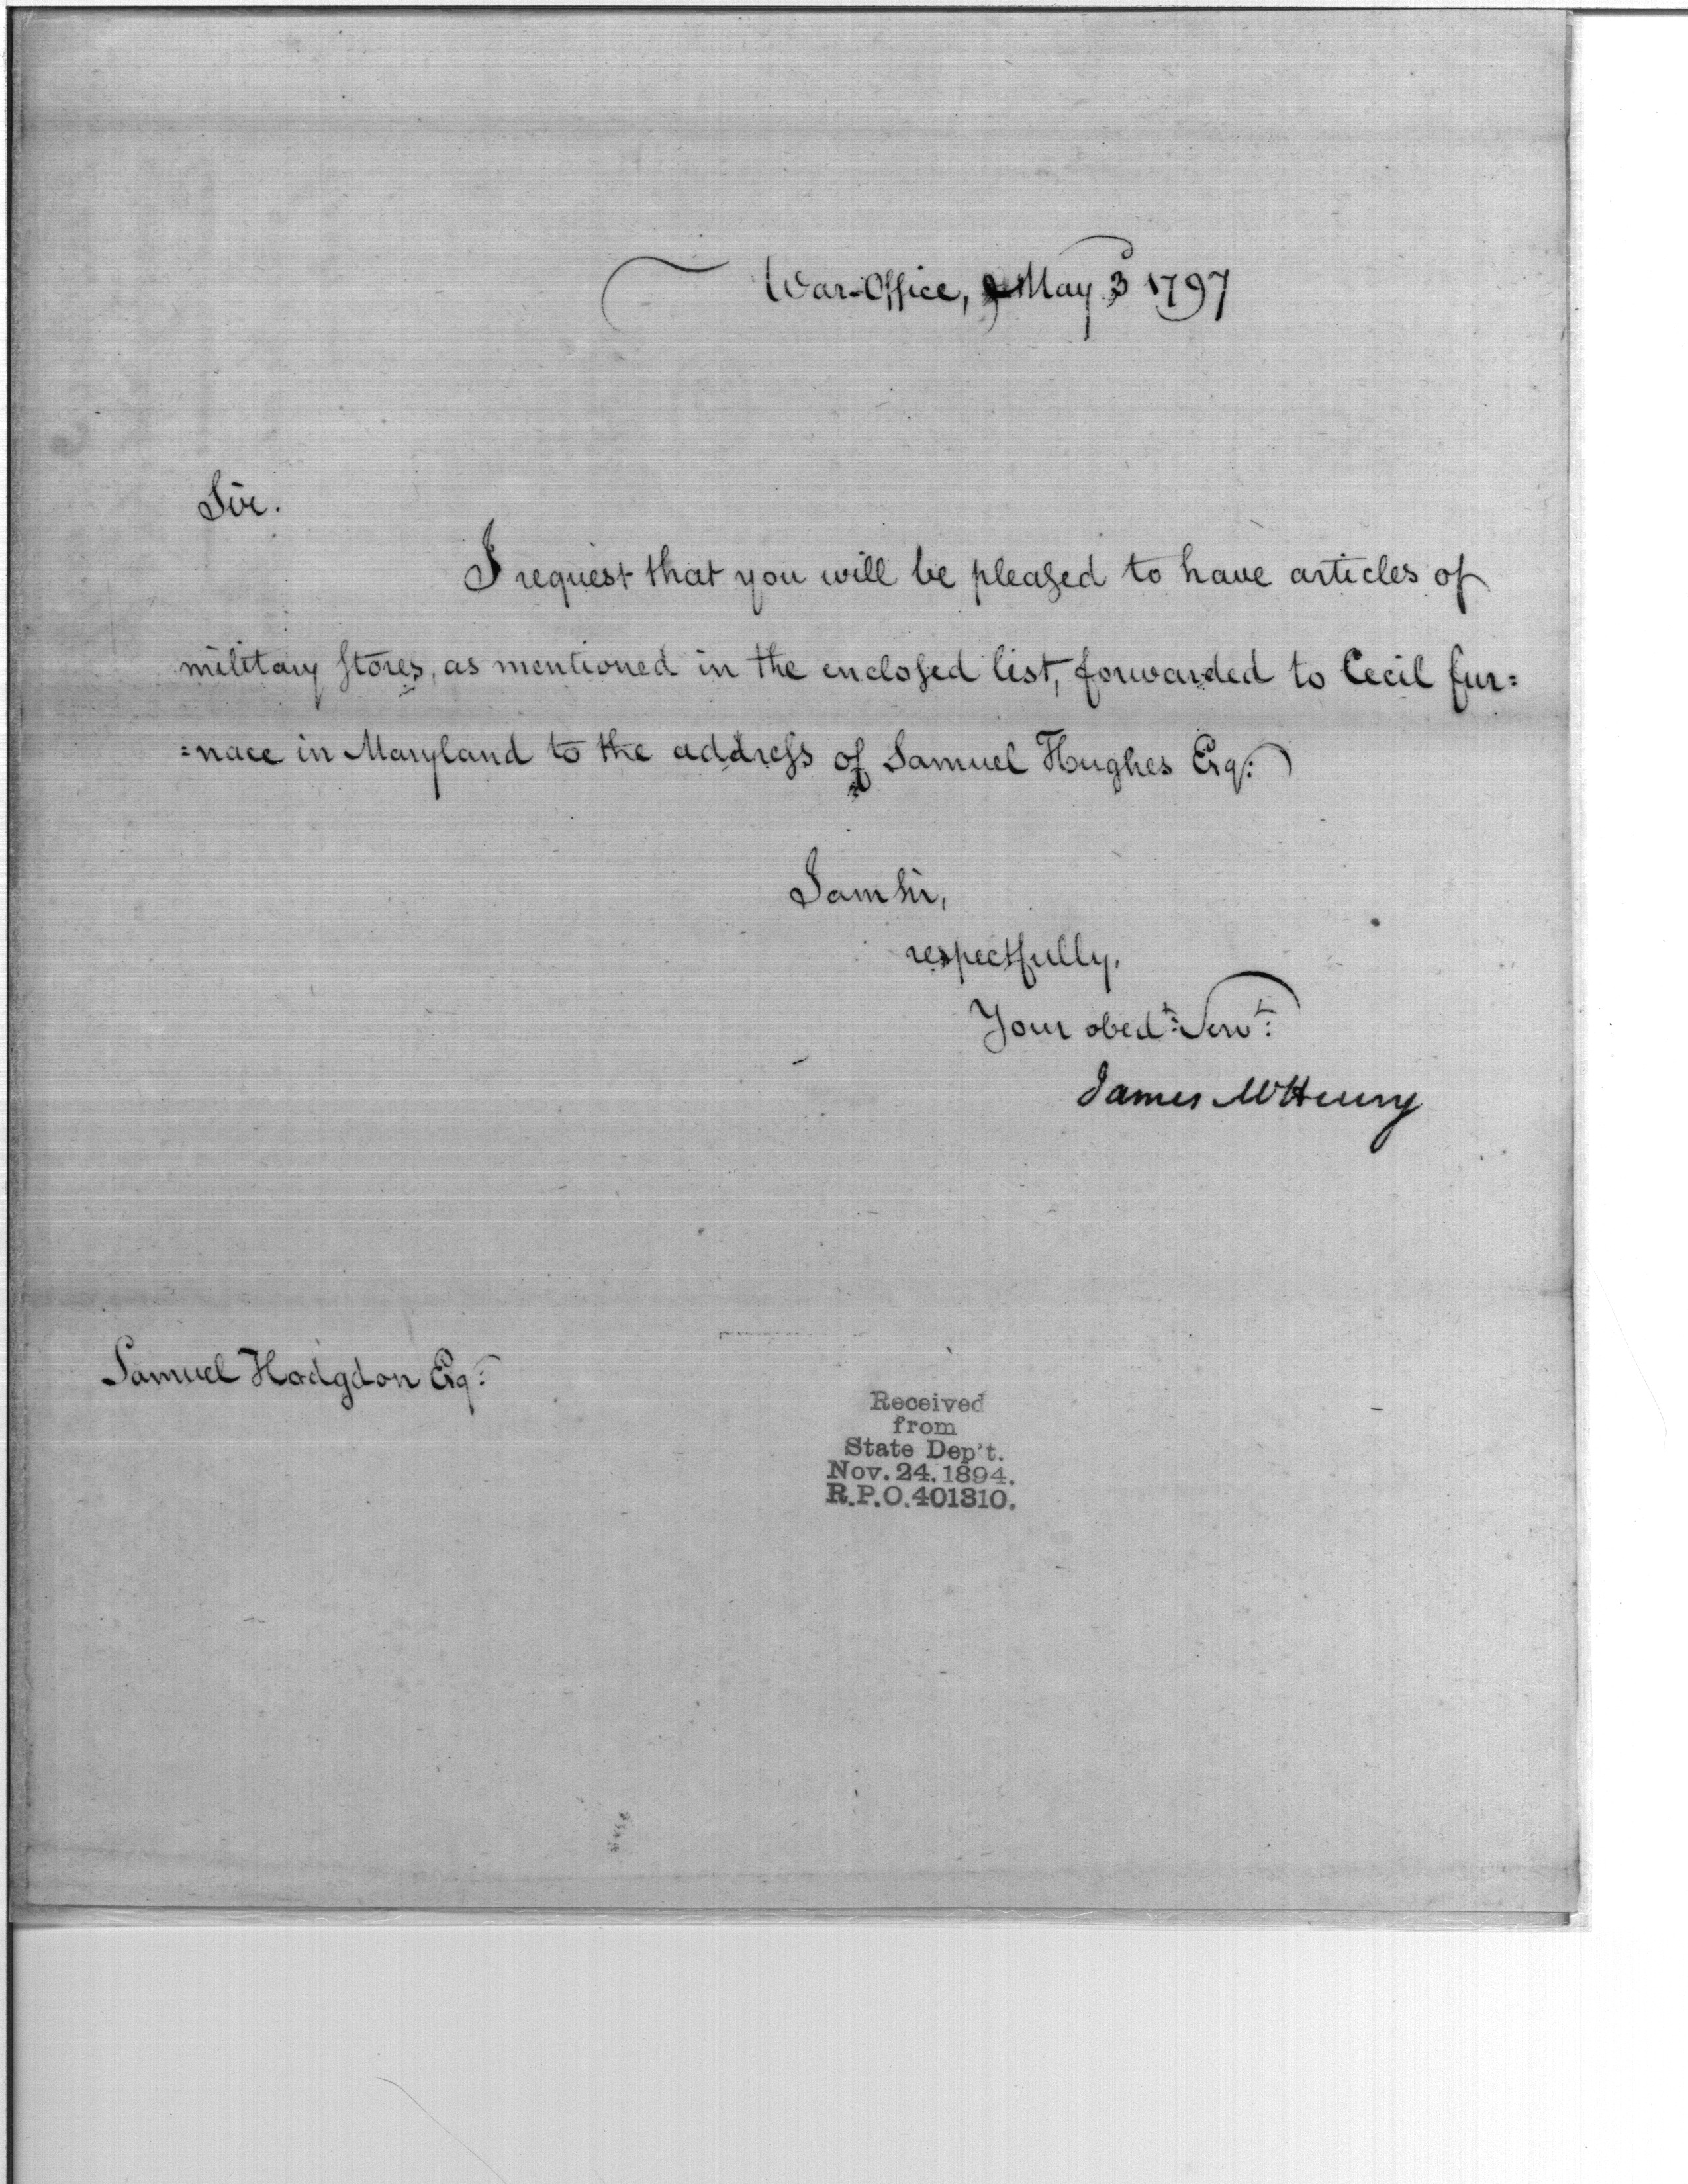 War-Office, May 3 1797
Sir.
I request that you will be pleased to have articles of
military stores, as mentioned in the enclosed list, forwarded to Cecil fur=
=nace in Maryland to the address of Samuel Hughes Esq:
I am Sir,
respectfully,
Your obed:t Serv:t
James McHenry
Samuel Hodgdon Esq:
Received
from
State Dep't.
Nov. 24. 1894.
R.P.O. 401310.